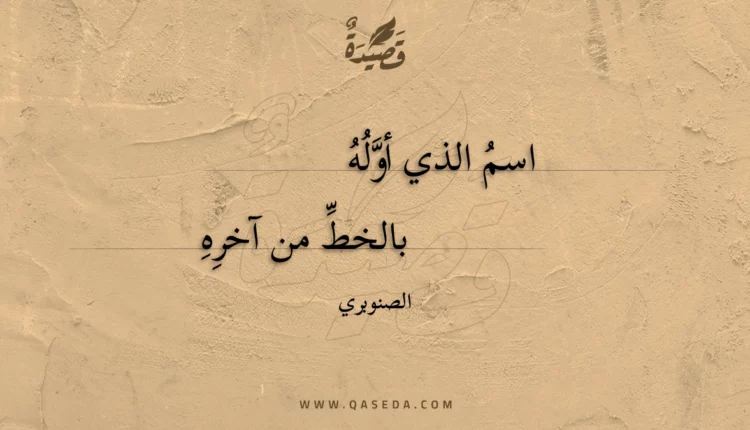 قَصِيدَةٌ
اسمُ الذي أوَّلُهُ
بالخطِّ من آخرِهِ
الصنوبري
WWW.QASEDA.COM